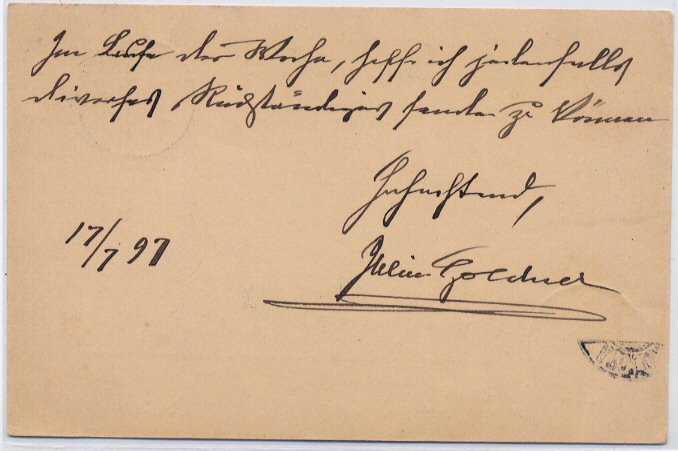 Im Laufe der Woche, hoffe ich jedenfalls
diverses Rückständiges senden zu können
Hochachtend,
17/7 97
Goldner